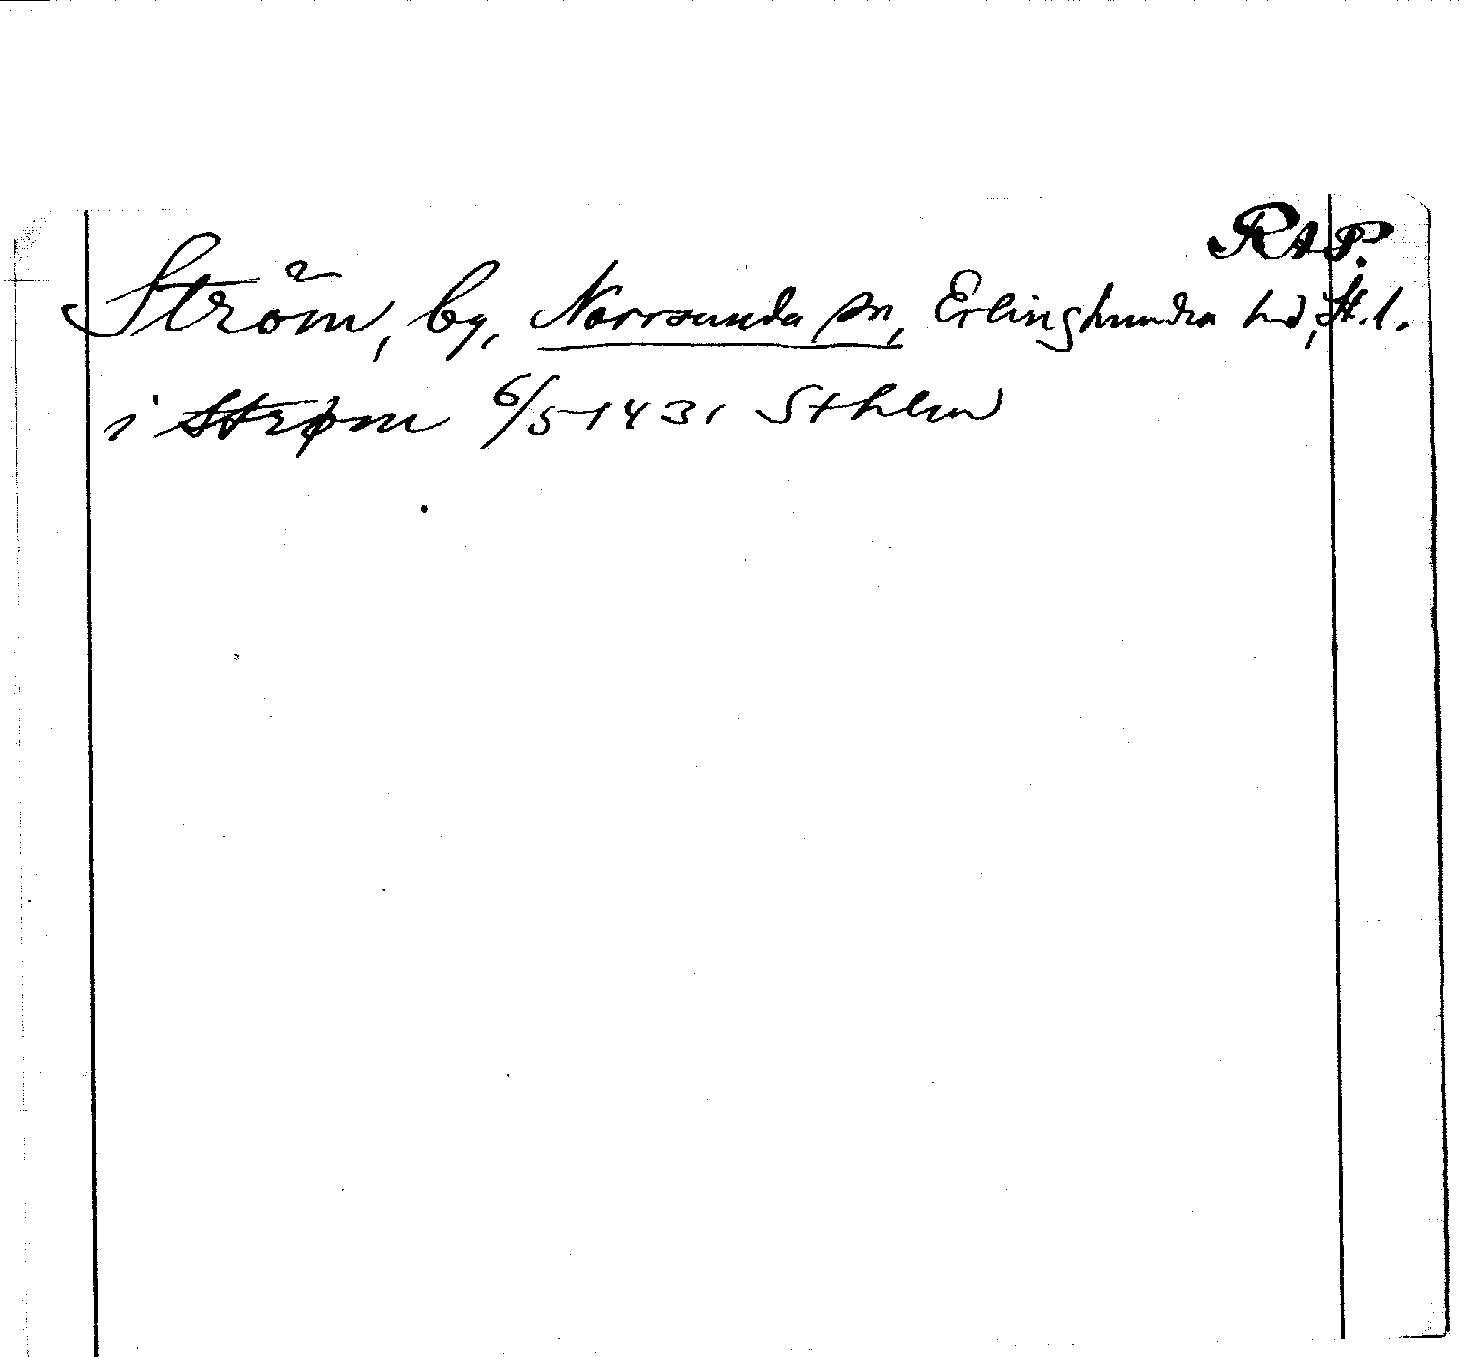 RAP.
Ström, by, Norrsunda sn, Erlinghundra hd, St. l.
i Strøm 6/5 1431 Sthlm